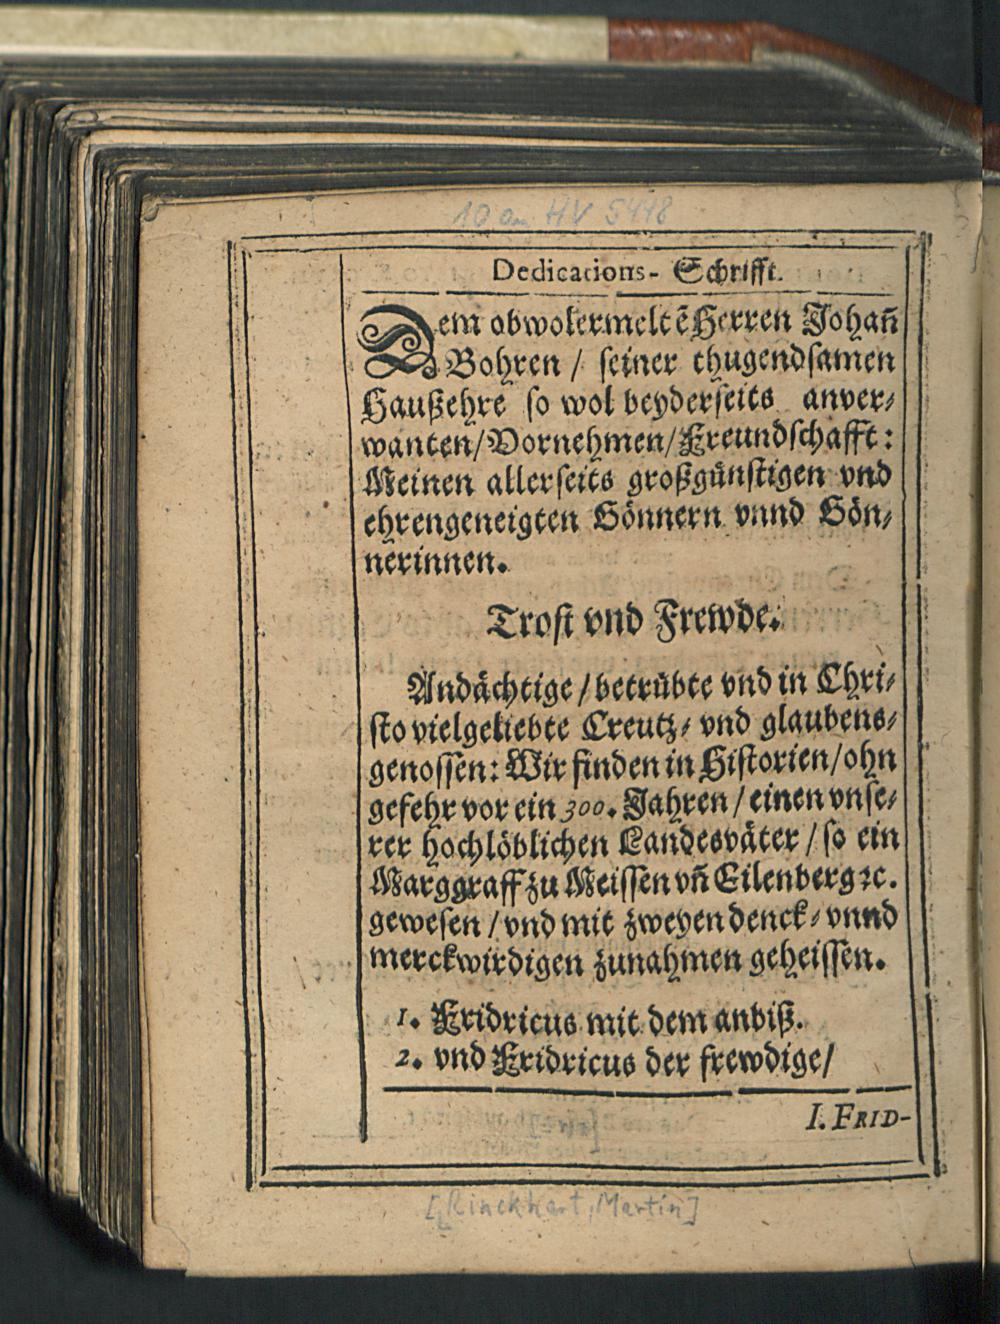 10 an HV 5448
Dedications- Schrifft.
Dem obwolermeltẽ Herren Johañ
Bohren / seiner thugendsamen
Haußehre so wol beyderseits anver-
wanten/Vornehmen/Freundschafft:
Meinen allerseits großgünstigen vnd
ehrengeneigten Gönnern vnnd Gön-
nerinnen.
Trost vnd Frewde.
Andächtige / betrübte vnd in Chri-
sto vielgeliebte Creutz- vnd glaubens-
genossen: Wir finden in Historien/ohn
gefehr vor ein 300. Jahren / einen vnse-
rer hochlöblichen Landesväter / so ein
Marggraff zu Meissen vñ Eilenberg ꝛc.
gewesen / vnd mit zweyen denck- vnnd
merckwirdigen zunahmen geheissen.
1. Fridricus mit dem anbiß.
2. vnd Fridricus der frewdige/
I. FRID-
[Rinckhart, Martin]